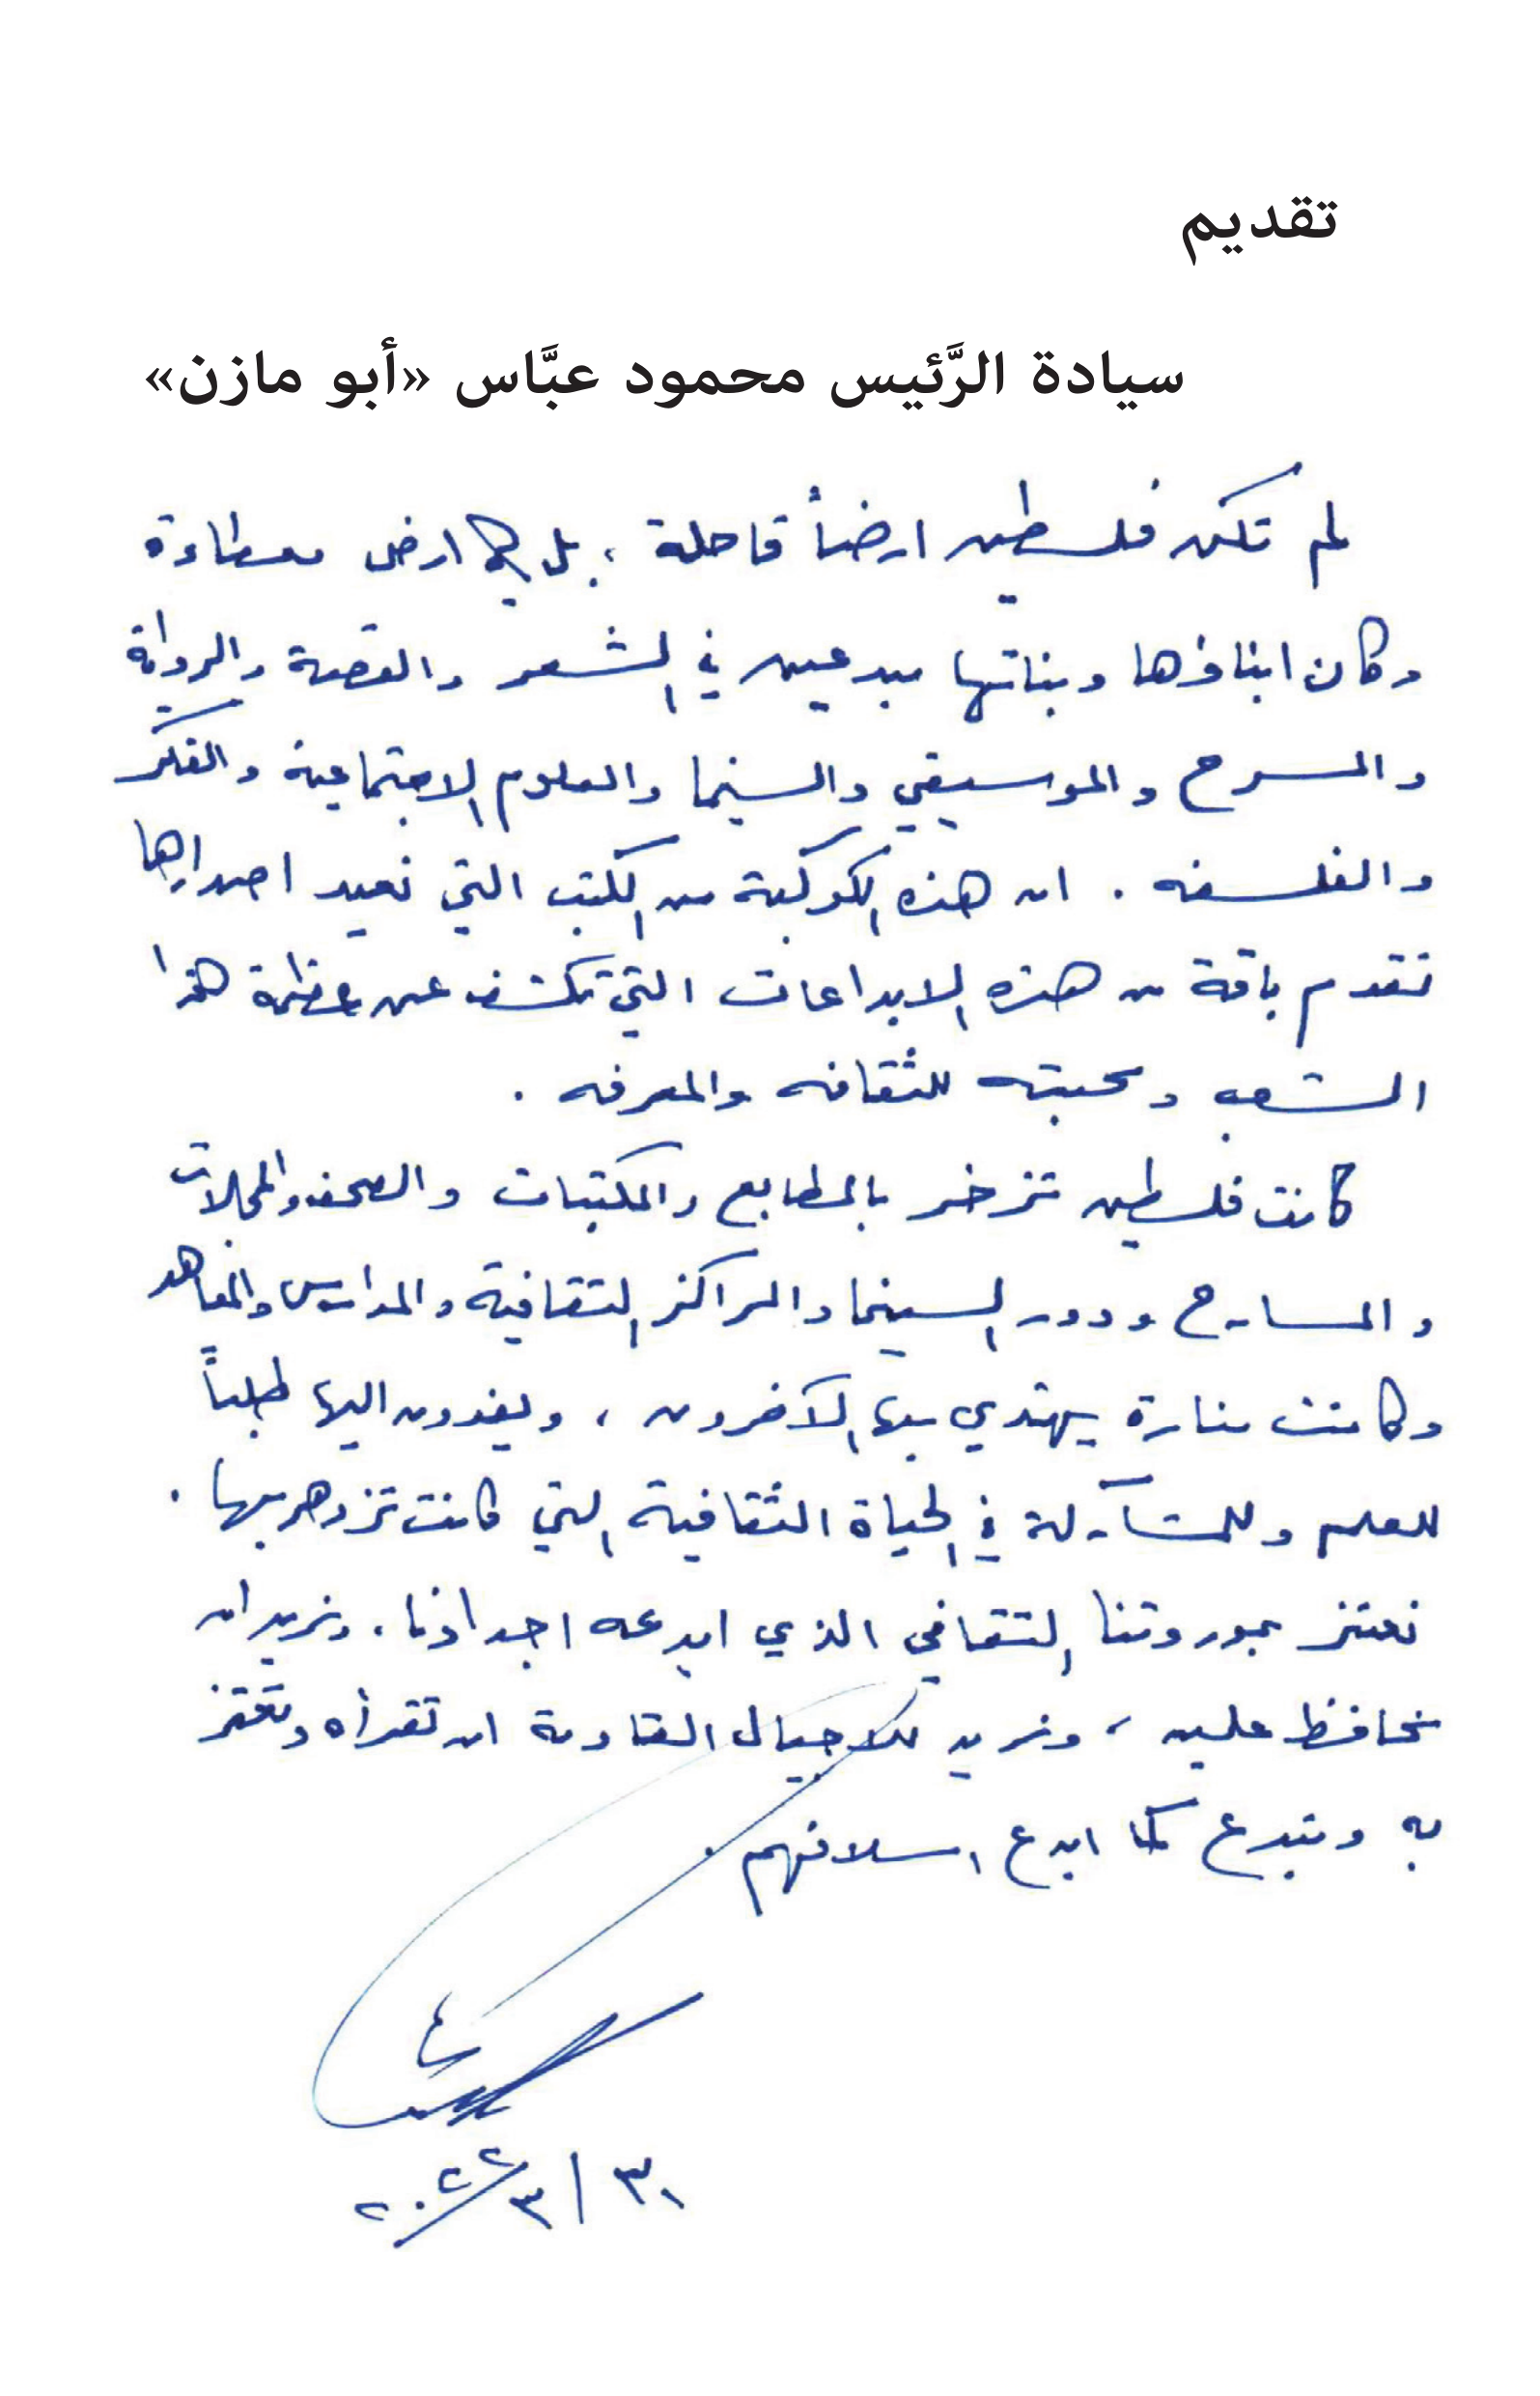 تقديم
سيادة الرَّئيس محمود عبَّاس «أبو مازن»
لم تكن فلسطين ارضاً قاحلة ، بل هي ارض معطاءة
وكان ابناؤها وبناتها مبدعين في الشعر والقصة والرواية
والمسرح والموسيقي والسينما والعلوم الاجتماعية والفكر
والفلسفه . ان هذه الكوكبة من الكتب التي نعيد اصدارها
تقدم باقة من هذه الابداعات التي تكشف عن عظمة هذا
الشعب ومحبته للثقافه والمعرفه .
كانت فلسطين تزخر بالمطابع والمكتبات والصحف والمجلات
والمسارح ودور السينما والمراكز الثقافية والمدارس والمعاهد
وكانت منارة يهتدي بها الآخرون ، ويفدون اليها طلباً
للعلم وللمشاركة في الحياة الثقافية التي كانت تزدهر بها .
نعتز بموروثنا الثقافي الذي ابدعه اجدادنا ، ونريد ان
نحافظ عليه ، ونريد للاجيال القادمة ان تقرأه وتعتز
به وتبدع كما ابدع اسلافهم .
٣١/٣/٢٠٢٢